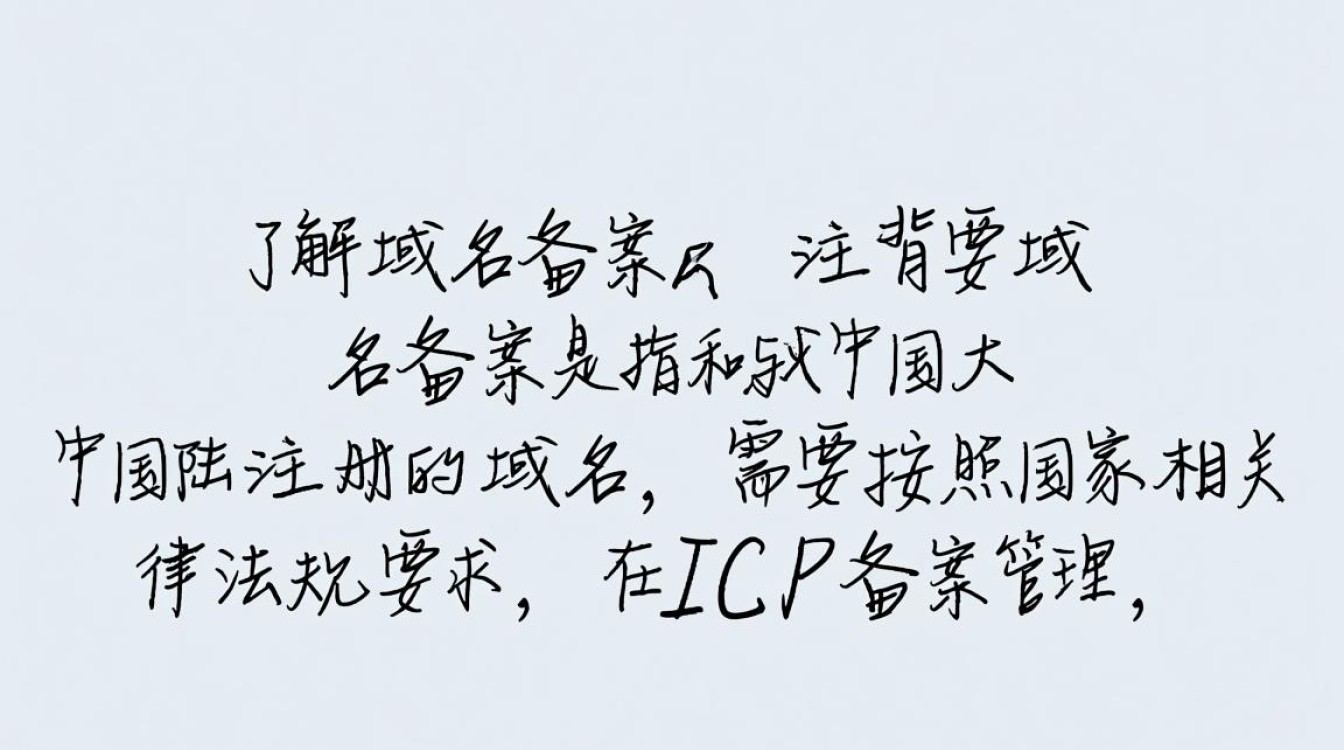 了解域名备案 注背要域
名备案是指和 中国大
中国陆注册的域名，需要按照国家相关
律法规要求，在ICP备案管理，